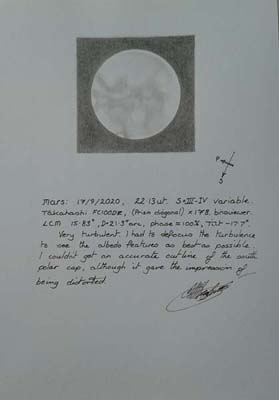 P
S
Mars: 17/9/2020, 22.13ut. S=III-IV variable.
Takahashi FC100DZ, (Prism diagonal) x178. binoviewer.
LCM 15.83°, D=21.3"arc, phase=100%, Tilt -17.7°
Very turbulent. I had to defocus the turbulence
to see the albedo features as best as possible.
I couldnt get an accurate outline of the south
polar cap, although it gave the impression of
being distorted.